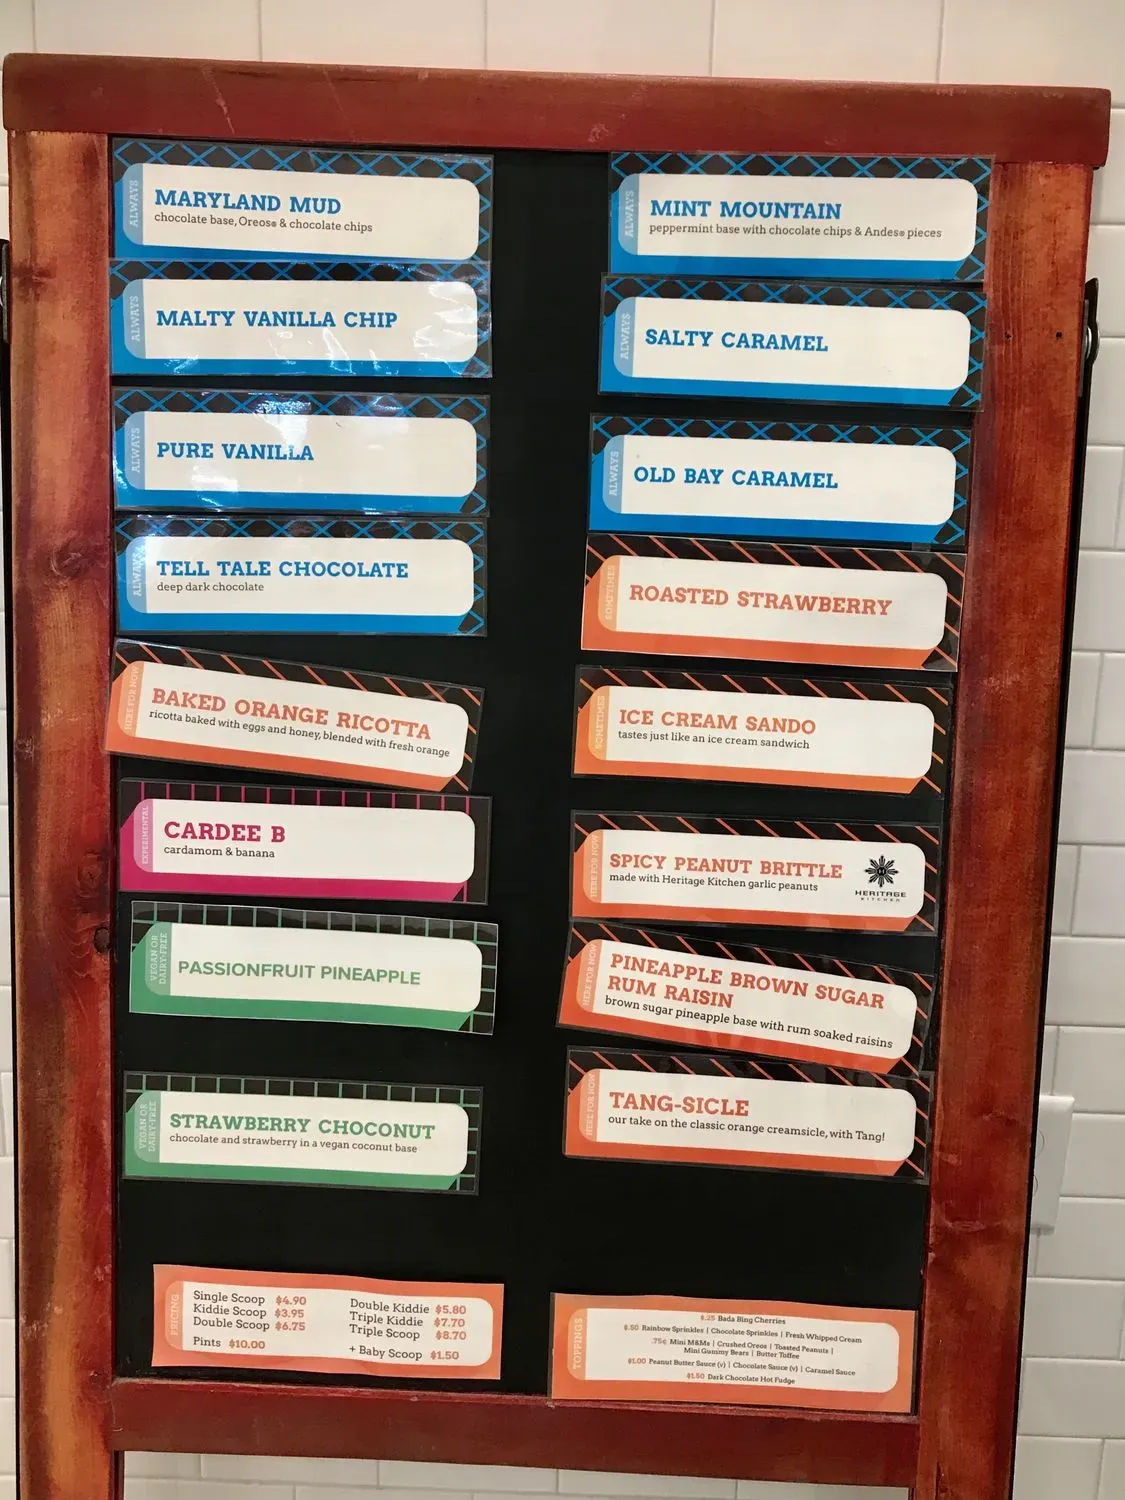 ALWAYS
MARYLAND MUD
chocolate base, Oreos® & chocolate chips
ALWAYS
MALTY VANILLA CHIP
ALWAYS
PURE VANILLA
ALWAYS
TELL TALE CHOCOLATE
deep dark chocolate
HERE FOR NOW
BAKED ORANGE RICOTTA
ricotta baked with eggs and honey, blended with fresh orange
EXPERIMENTAL
CARDEE B
cardamom & banana
VEGAN OR
DAIRY-FREE
PASSIONFRUIT PINEAPPLE
VEGAN OR
DAIRY-FREE
STRAWBERRY CHOCONUT
chocolate and strawberry in a vegan coconut base
ALWAYS
MINT MOUNTAIN
peppermint base with chocolate chips & Andes® pieces
ALWAYS
SALTY CARAMEL
ALWAYS
OLD BAY CARAMEL
SOMETIMES
ROASTED STRAWBERRY
SOMETIMES
ICE CREAM SANDO
tastes just like an ice cream sandwich
HERE FOR NOW
SPICY PEANUT BRITTLE
made with Heritage Kitchen garlic peanuts
H
HERITAGE
KITCHEN
HERE FOR NOW
PINEAPPLE BROWN SUGAR
RUM RAISIN
brown sugar pineapple base with rum soaked raisins
HERE FOR NOW
TANG-SICLE
our take on the classic orange creamsicle, with Tang!
PRICING
Single Scoop $4.90
Kiddie Scoop $3.95
Double Scoop $6.75
Pints $10.00
Double Kiddie $5.80
Triple Kiddie $7.70
Triple Scoop $8.70
+ Baby Scoop $1.50
TOPPINGS
$.25 Bada Bing Cherries
$.50 Rainbow Sprinkles | Chocolate Sprinkles | Fresh Whipped Cream
.75¢ Mini M&Ms | Crushed Oreos | Toasted Peanuts |
Mini Gummy Bears | Butter Toffee
$1.00 Peanut Butter Sauce (v) | Chocolate Sauce (v) | Caramel Sauce
$1.50 Dark Chocolate Hot Fudge